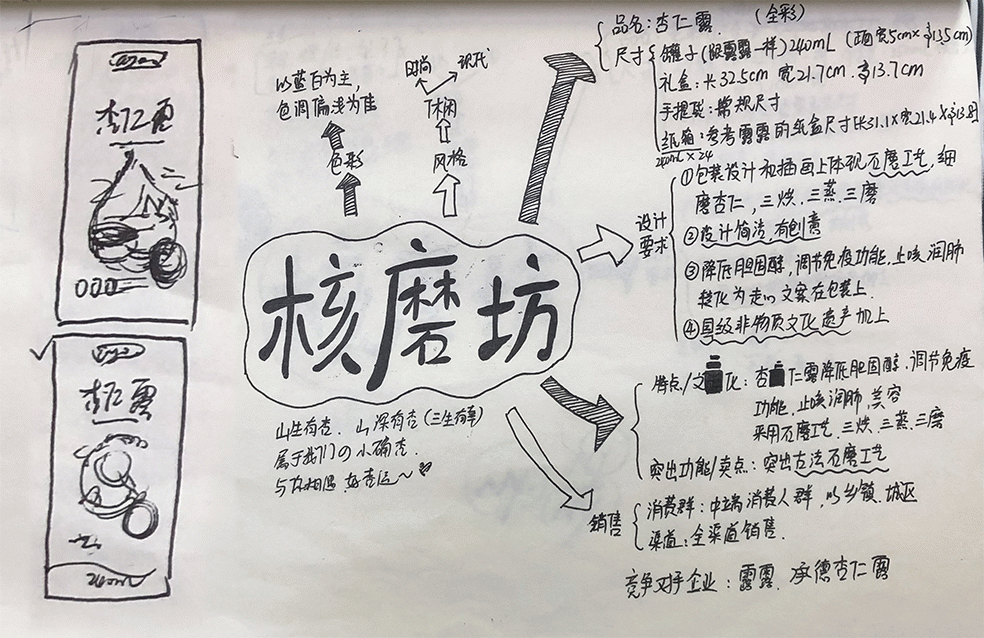 杏仁露
240ml
杏仁露
以蓝白为主,
色调偏浅为佳
色彩
时尚
现代
休闲
风格
核磨坊
山生有杏、山深有杏(三生有幸)
属于我们の小确杏
品名:杏仁露 (全彩)
尺寸
罐子(跟露露一样)240mL (正面宽5cm×高13.5cm)
礼盒:长32.5cm 宽21.7cm 高13.7cm
手提袋:常规尺寸
纸箱:参考露露的纸盒尺寸长31.1×宽21.4×高13.8
240mL×24
设计
要求
①包装设计和插画上体现石磨工艺,细
磨杏仁,三烘、三蒸、三磨
②设计简洁,有创意
③降低胆固醇,调节免疫功能,止咳润肺
转化为走心文案在包装上
④国级非物质文化遗产加上
特点/文化:杏仁露降低胆固醇、调节免疫
功能、止咳润肺,美容
采用石磨工艺、三烘、三蒸、三磨
突出功能/卖点:突出古法石磨工艺
销售
消费群:中端消费人群,以乡镇、城区
渠道:全渠道销售.
竞争对手企业:露露、承德杏仁露